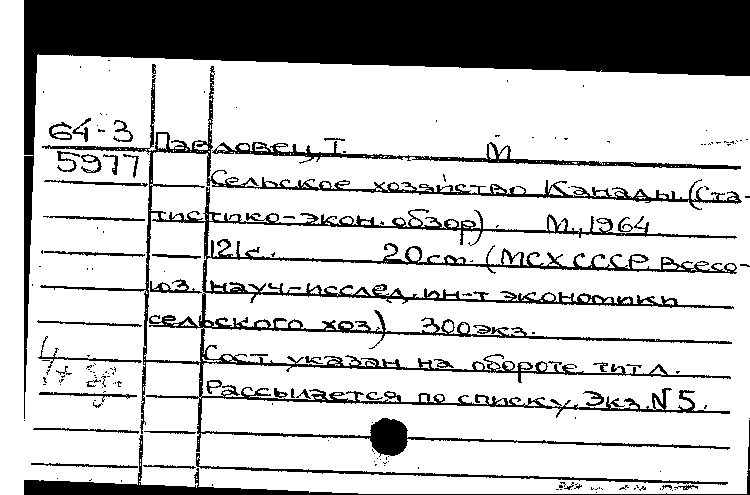 64-3
5977
Павловец, Т. М
Сельское хозяйство Канады. (Ста-
тистико-экон. обзор). М., 1964
121 с. 20 см. (МСХ СССР. Всесо-
юз. науч-исслед. ин-т экономики
сельского хоз.) 300 экз.
Сост. указан на обороте тит. л.
Рассылается по списку. Экз. N 5.